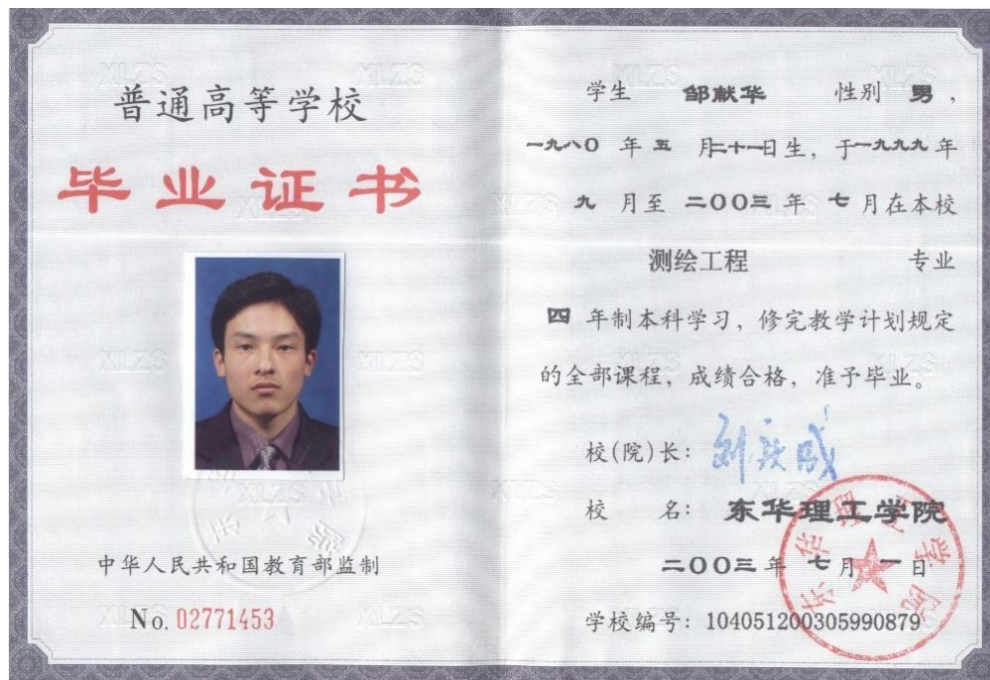 普通高等学校
毕业证书
中华人民共和国教育部监制
No. 02771453
学生 邹献华 性别 男，
一九八〇 年 五 月二十一日生，于一九九九 年
九 月至 二〇〇三 年 七 月在本校
测绘工程 专业
四 年制本科学习，修完教学计划规定
的全部课程，成绩合格，准予毕业。
校(院)长：
校 名：东华理工学院
二〇〇三 年 七 月 一 日
学校编号：104051200305990879
东华理工学院
XLZS